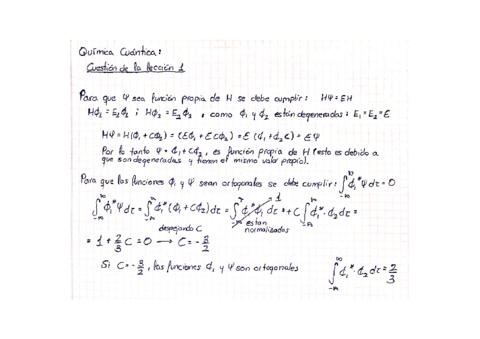 Química Cuántica:
Cuestión de la lección 1
Para que Ψ sea función propia de H se debe cumplir: HΨ=EH
Hϕ₁=E₂ϕ₁ ; Hϕ₂=E₂ϕ₂ , como ϕ₁ y ϕ₂ están degeneradas: E₁=E₂=E
HΨ=H(ϕ₁+Cϕ₂)=(Eϕ₁+ECϕ₂)=E(ϕ₁+ϕ₂C)=EΨ
Por lo tanto Ψ=ϕ₁+Cϕ₂, es función propia de H (esto es debido a
que son degeneradas y tienen el mismo valor propio).
Para que las funciones ϕ₁ y Ψ sean ortogonales se debe cumplir: ∫ϕ₁*Ψdτ=0
∫ϕ₁*Ψdτ=∫ϕ₁*(ϕ₁+Cϕ₂)dτ=∫ϕ₁*ϕ₁dτ+C∫ϕ₁*·ϕ₂dτ= 1
despejando C están normalizados
=1+2/3C=0 → C=-3/2
Si C=-3/2, las funciones ϕ₁ y Ψ son ortogonales
∫ϕ₁*·ϕ₂dτ=2/3